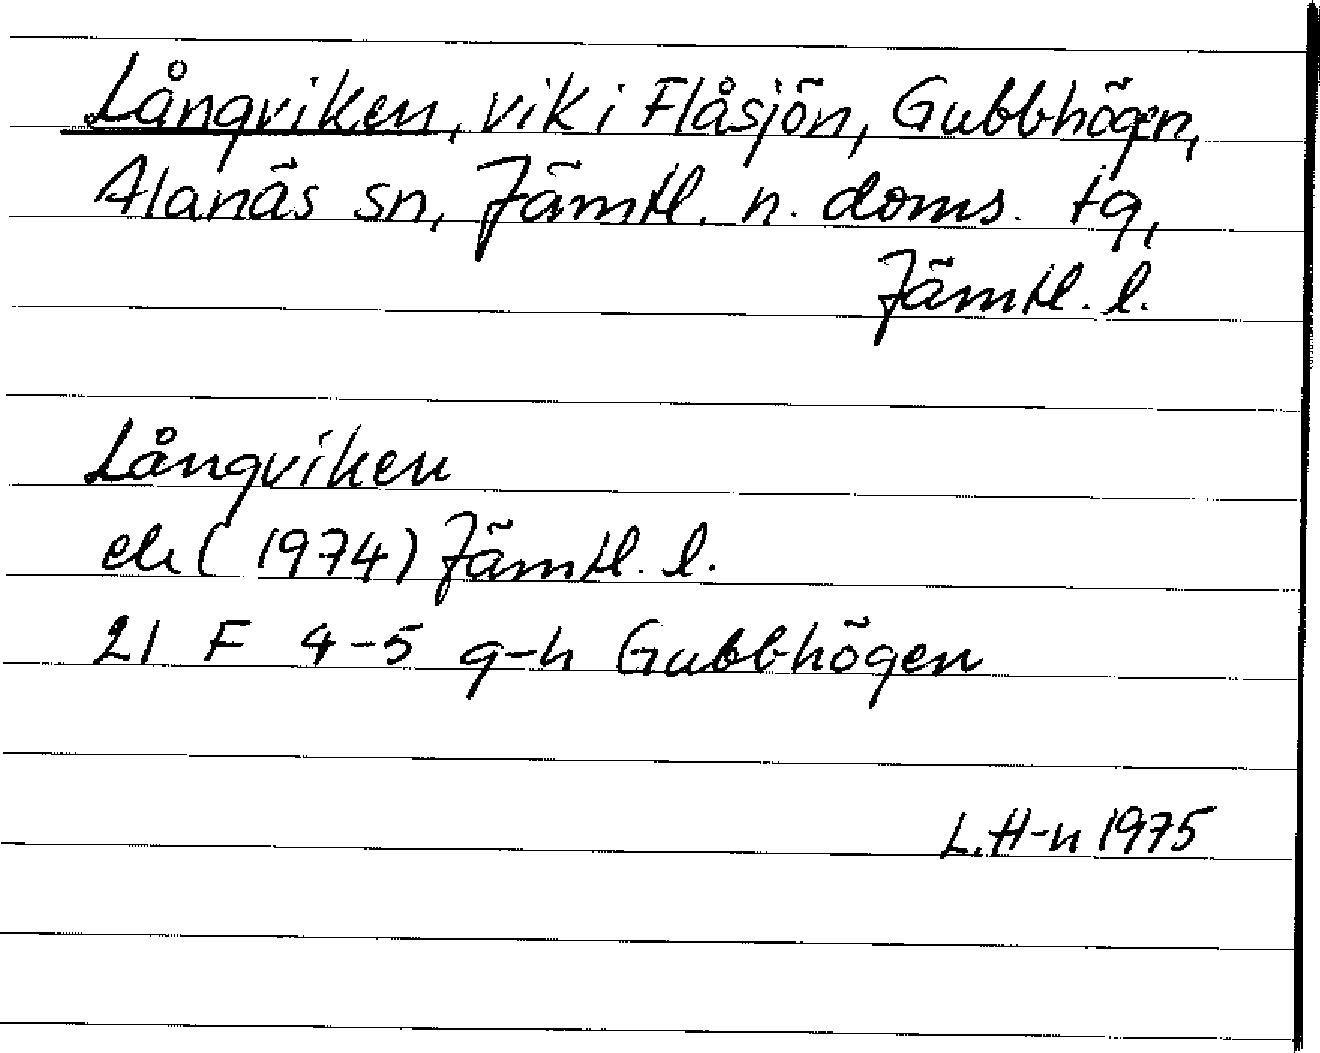 Långviken, vik i Flåsjön, Gubbhögen,
Alanäs sn, Jämtl. n. doms. tg,
Jämtl. l.
Långviken
ek (1974) Jämtl. l.
21 F 4-5 g-h Gubbhögen
L. H-n 1975